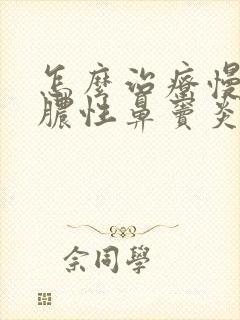 怎麼治療慢
膿性鼻竇炎
佘同學